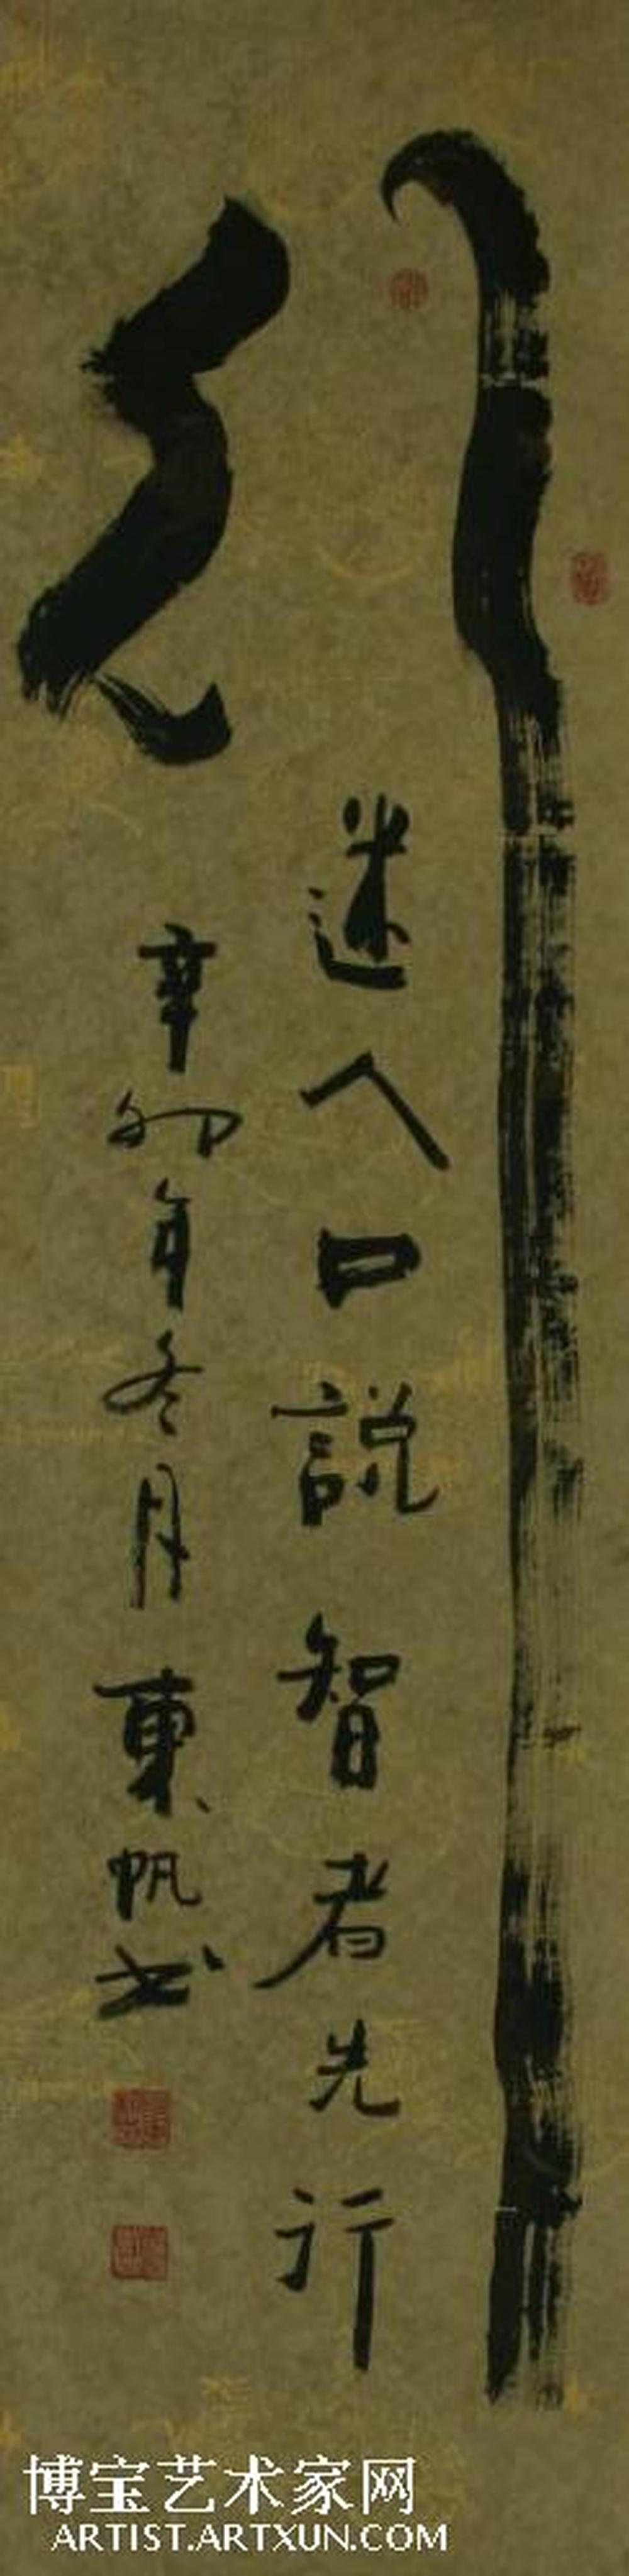 行
迷人口説智者先行
辛卯年冬月東帆书
博宝艺术家网
ARTIST.ARTXUN.COM